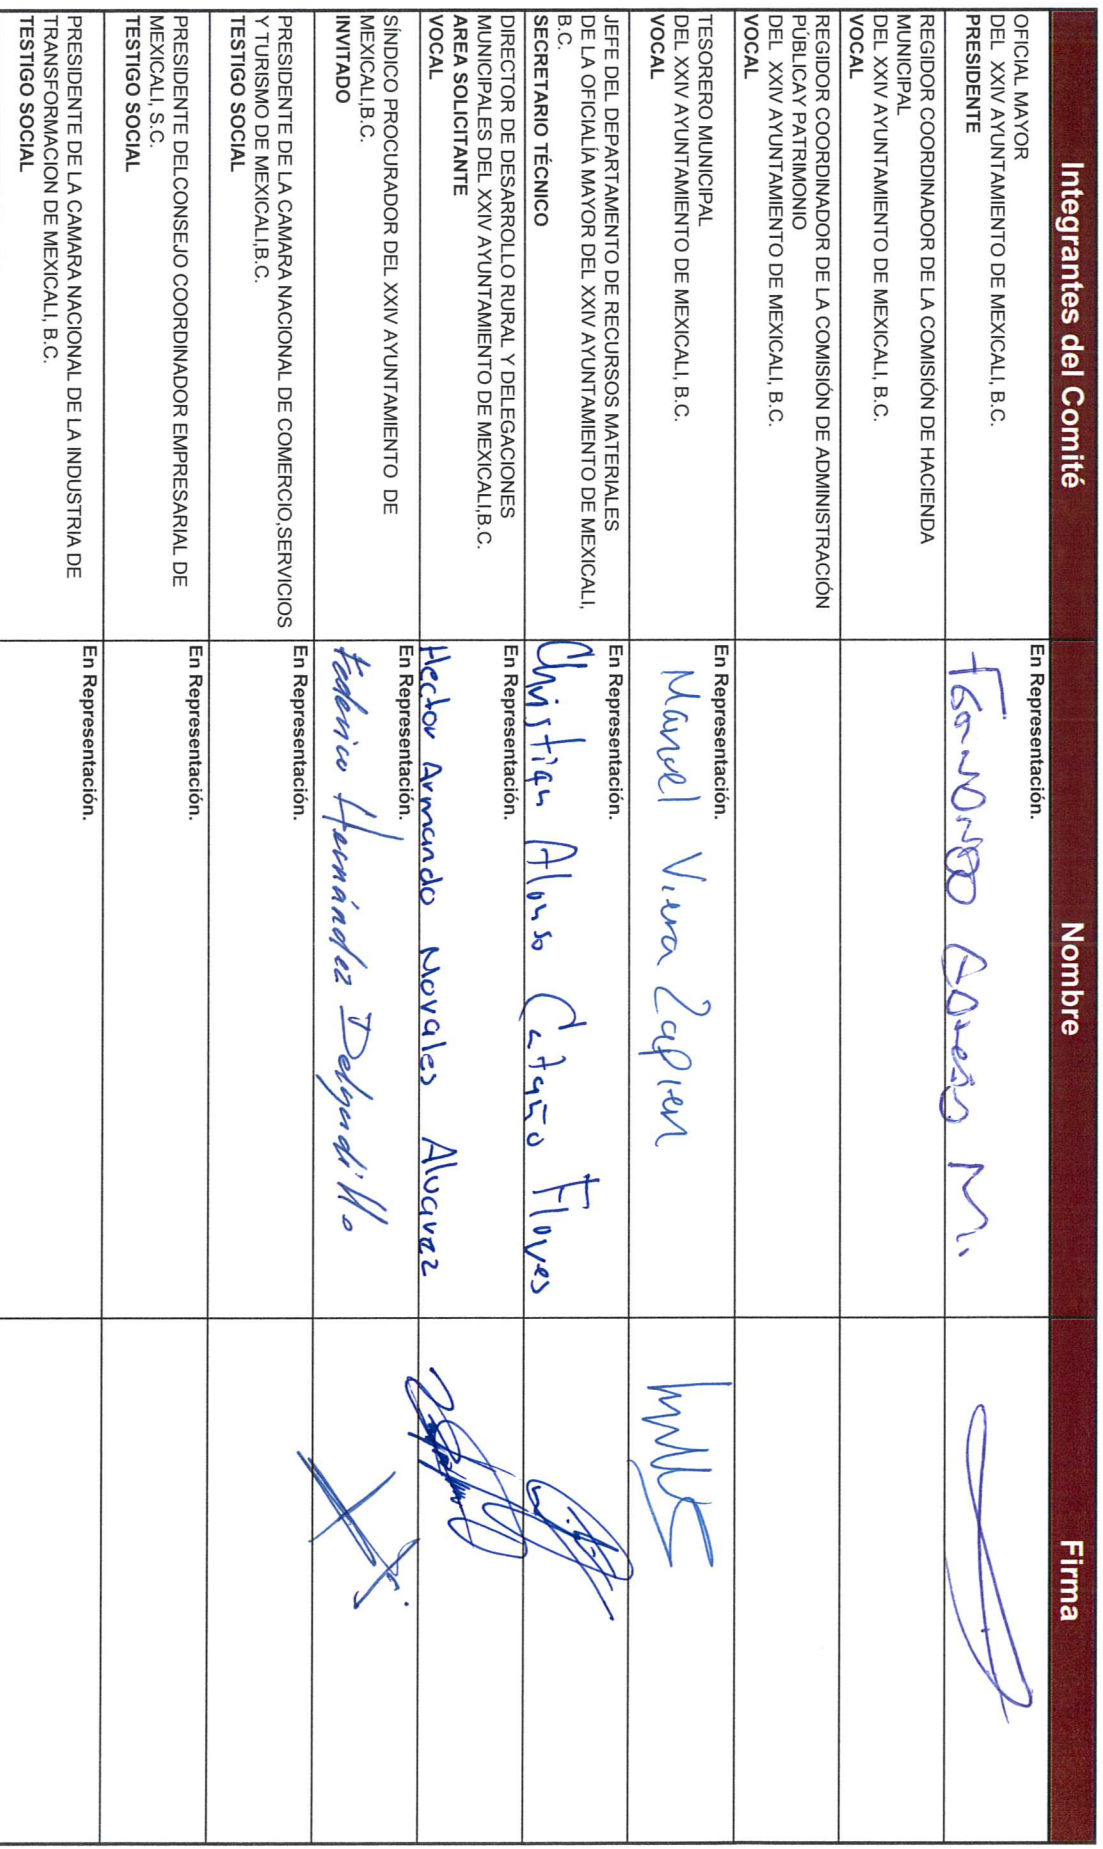 Integrantes del Comité
Nombre
Firma
OFICIAL MAYOR
DEL XXIV AYUNTAMIENTO DE MEXICALI, B.C.
PRESIDENTE
En Representación.
M.
REGIDOR COORDINADOR DE LA COMISIÓN DE HACIENDA
MUNICIPAL
DEL XXIV AYUNTAMIENTO DE MEXICALI, B.C.
VOCAL
REGIDOR COORDINADOR DE LA COMISIÓN DE ADMINISTRACIÓN
PÚBLICAY PATRIMONIO
DEL XXIV AYUNTAMIENTO DE MEXICALI, B.C.
VOCAL
TESORERO MUNICIPAL
DEL XXIV AYUNTAMIENTO DE MEXICALI, B.C.
VOCAL
En Representación.
Manuel Viera Zapien
JEFE DEL DEPARTAMENTO DE RECURSOS MATERIALES
DE LA OFICIALÍA MAYOR DEL XXIV AYUNTAMIENTO DE MEXICALI,
B.C.
SECRETARIO TÉCNICO
En Representación.
Christian Alonso Cataño Flores
DIRECTOR DE DESARROLLO RURAL Y DELEGACIONES
MUNICIPALES DEL XXIV AYUNTAMIENTO DE MEXICALI,B.C.
AREA SOLICITANTE
VOCAL
En Representación.
Hector Armando Novales Alvarez
SÍNDICO PROCURADOR DEL XXIV AYUNTAMIENTO DE
MEXICALI,B.C.
INVITADO
En Representación.
Federico Hernández Delgadillo
PRESIDENTE DE LA CAMARA NACIONAL DE COMERCIO,SERVICIOS
Y TURISMO DE MEXICALI,B.C.
TESTIGO SOCIAL
En Representación.
PRESIDENTE DELCONSEJO COORDINADOR EMPRESARIAL DE
MEXICALI, S.C.
TESTIGO SOCIAL
En Representación.
PRESIDENTE DE LA CAMARA NACIONAL DE LA INDUSTRIA DE
TRANSFORMACION DE MEXICALI, B.C.
TESTIGO SOCIAL
En Representación.